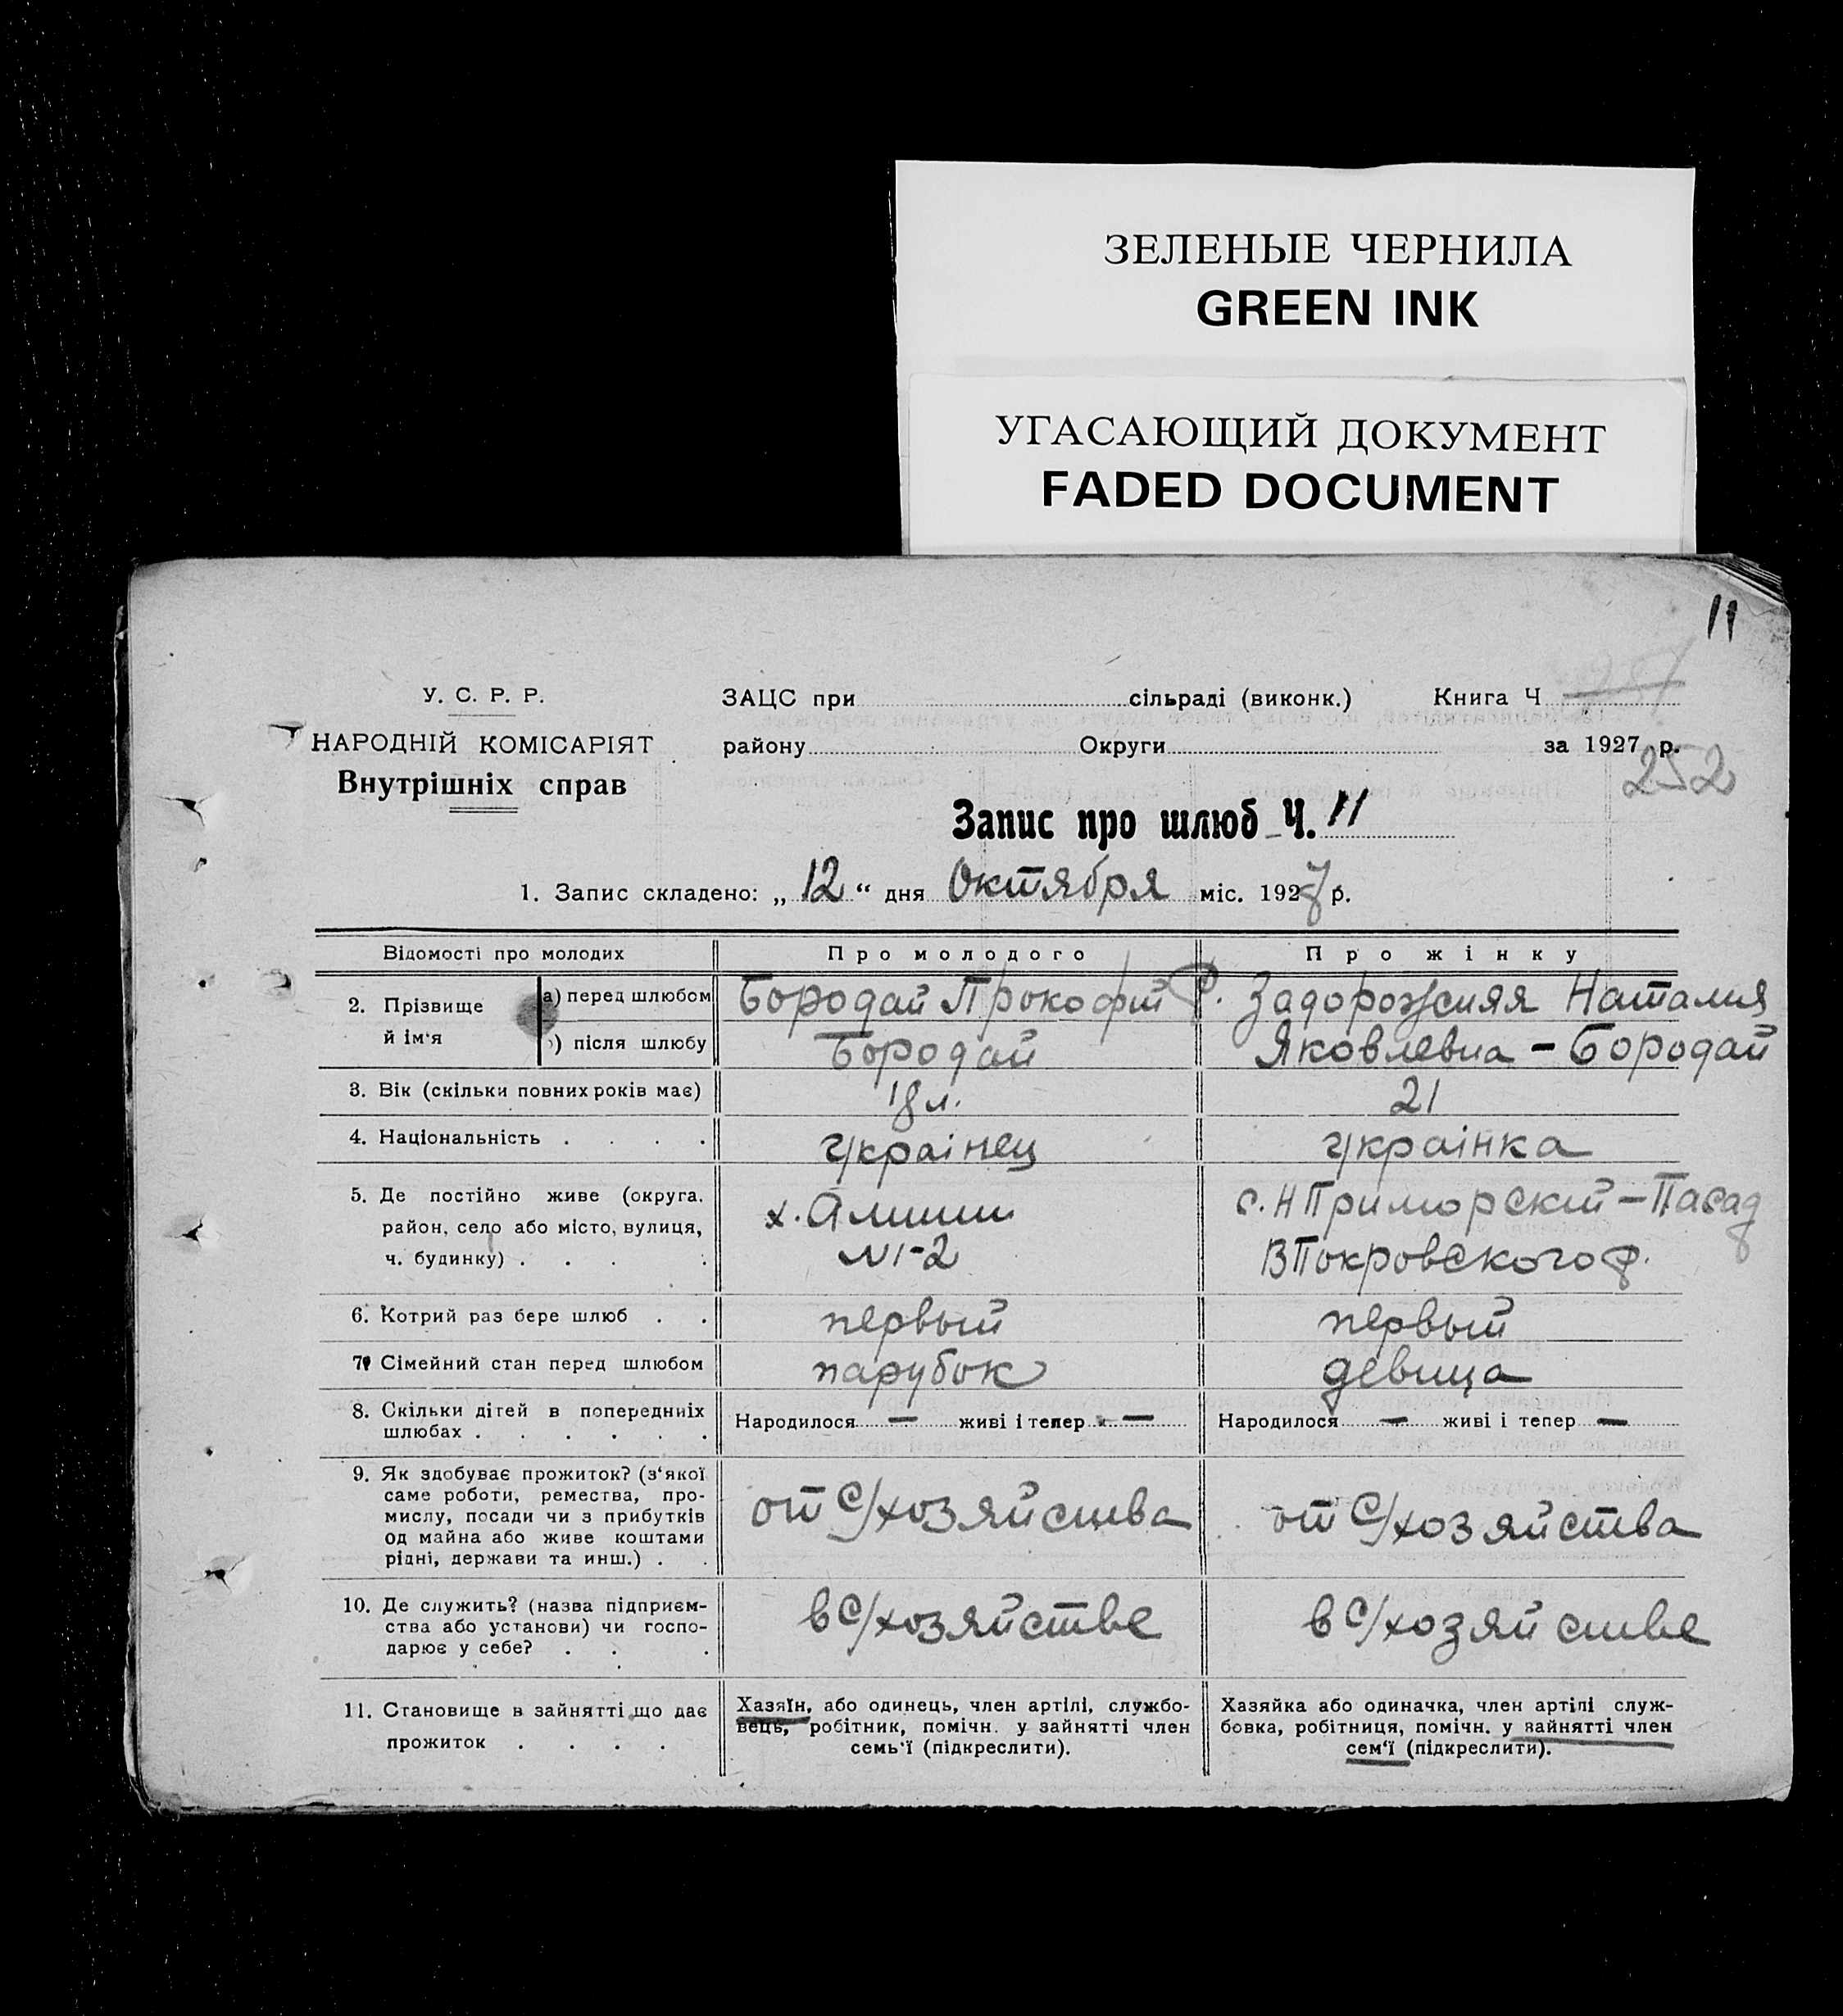 ЗЕЛЕНЫЕ ЧЕРНИЛА
GREEN INK
УГАСАЮЩИЙ ДОКУМЕНТ
FADED DOCUMENT
11
У. С. Р. Р.
НАРОДНІЙ КОМІСАРІЯТ
Внутрішніх справ
ЗАЦС при сільраді (виконк.) Книга Ч
району Округи за 1927 р.
252
Запис про шлюб Ч. 11
1. Запис складено: „ 12 “ дня Октября міс. 1927 р.
Відомості про молодих Про молодого Про жінку
2. Прізвище й ім'я
а) перед шлюбом Бородай Прокофій Ф. Задорожняя Наталия
б) після шлюбу Бородай Яковлевна - Бородай
3. Вік (скільки повних років має) 18 л. 21
4. Національність . . . . Украінец Украінка
5. Де постійно живе (округа, район, село або місто, вулиця, ч. будинку) . . .
х.
№1-2
с. Н Приморский - Пасад
В Покровского р.
6. Котрий раз бере шлюб . . первый первый
7. Сімейний стан перед шлюбом парубок девица
8. Скільки дітей в попередніх шлюбах . . . . . .
Народилося — живі і тепер —
Народилося — живі і тепер —
9. Як здобуває прожиток? (з'якої
саме роботи, ремества, про-
мислу, посади чи з прибутків
од майна або живе коштами
рідні, держави та инш.) . .
от с/хозяйства
от с/хозяйства
10. Де служить? (назва підприєм-
ства або установи) чи госпо-
дарює у себе? . . .
в с/хозяйстве
в с/хозяйстве
11. Становище в зайнятті що дає
прожиток . . . .
Хазяїн, або одинець, член артілі, службо-
вець, робітник, помічн. у зайнятті член
семь'ї (підкреслити).
Хазяйка або одиначка, член артілі служ-
бовка, робітниця, помічн. у зайнятті член
сем'ї (підкреслити).